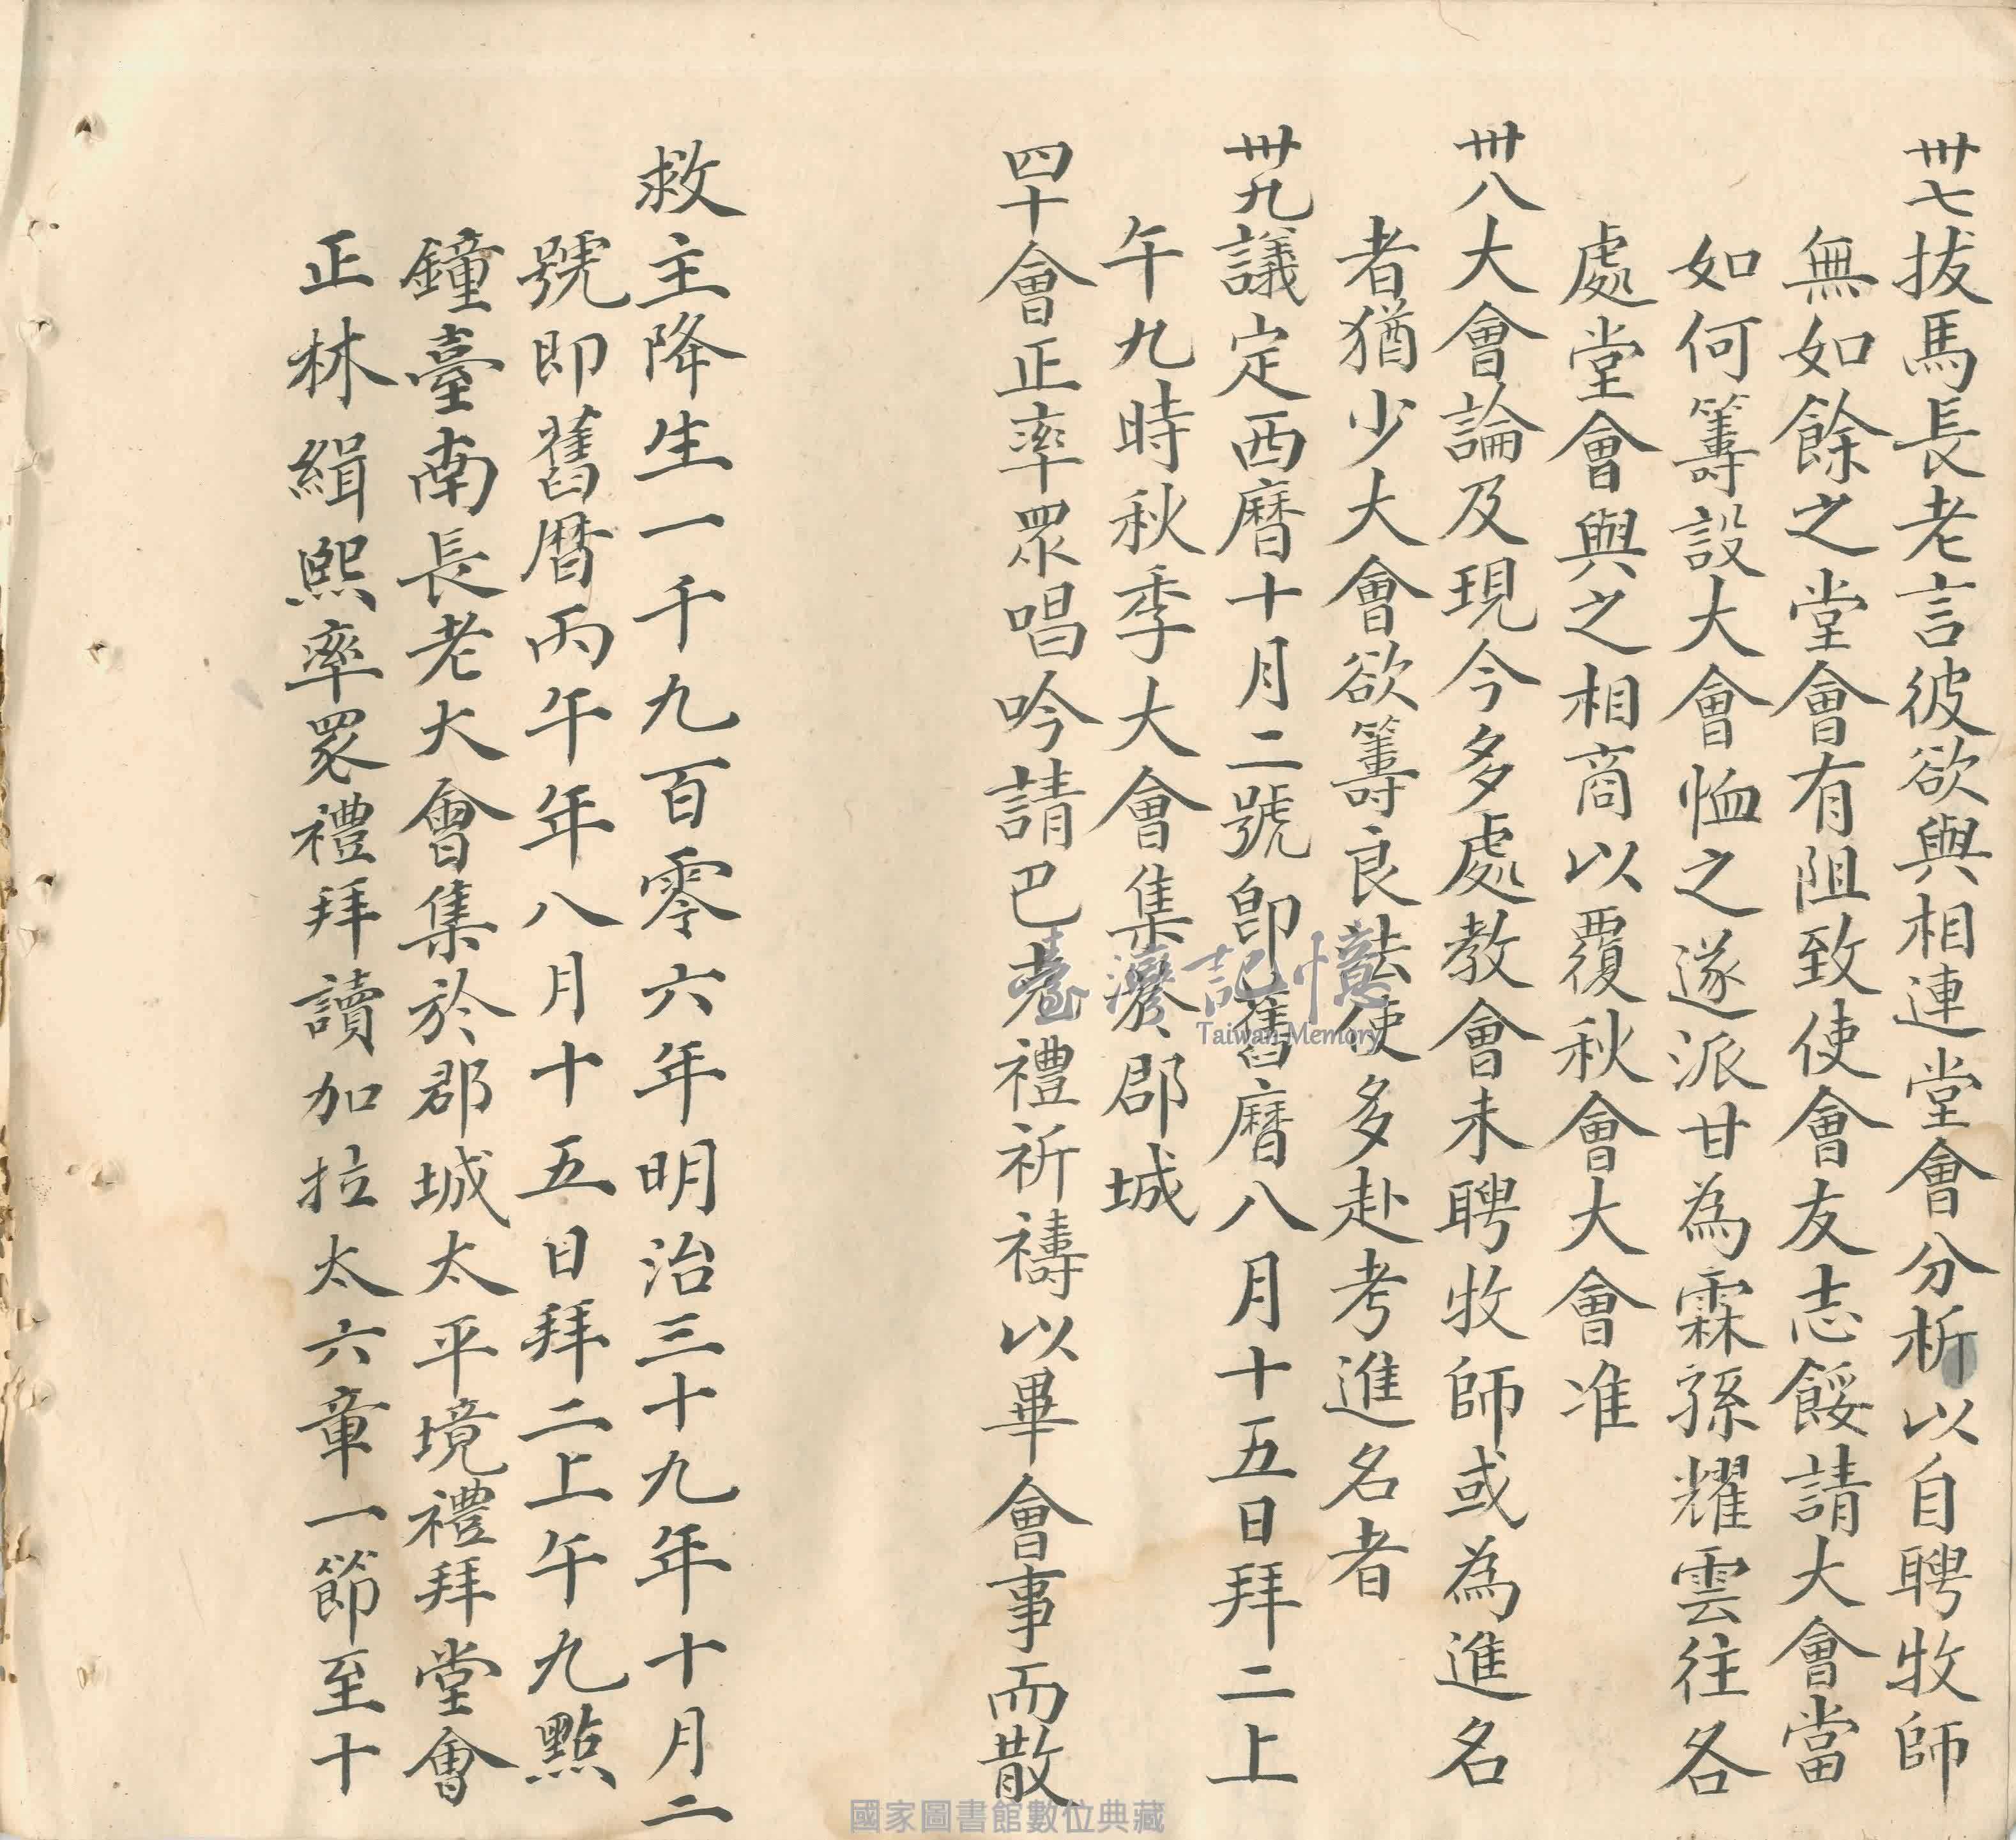 卅七拔馬長老言彼欲與相連堂會分析以自聘牧師
無如餘之堂會有阻致使會友志餒請大會當
如何籌設大會恤之遂派甘為霖孫耀雲往各
處堂會與之相商以覆秋會大會准
卅八大會論及現今多處教會未聘牧師或為進名
者猶少大會欲籌良法使多赴考進名者
卅九議定西曆十月二號即舊曆八月十五日拜二上
午九時秋季大會集於郡城
四十會正率眾唱吟請巴克禮祈禱以畢會事而散
救主降生一千九百零六年明治三十九年十月二
號即舊曆丙午年八月十五日拜二上午九點
鐘臺南長老大會集於郡城太平境禮拜堂會
正林緝熙率眾禮拜讀加拉太六章一節至十
臺灣記憶
Taiwan Memory
國家圖書館數位典藏